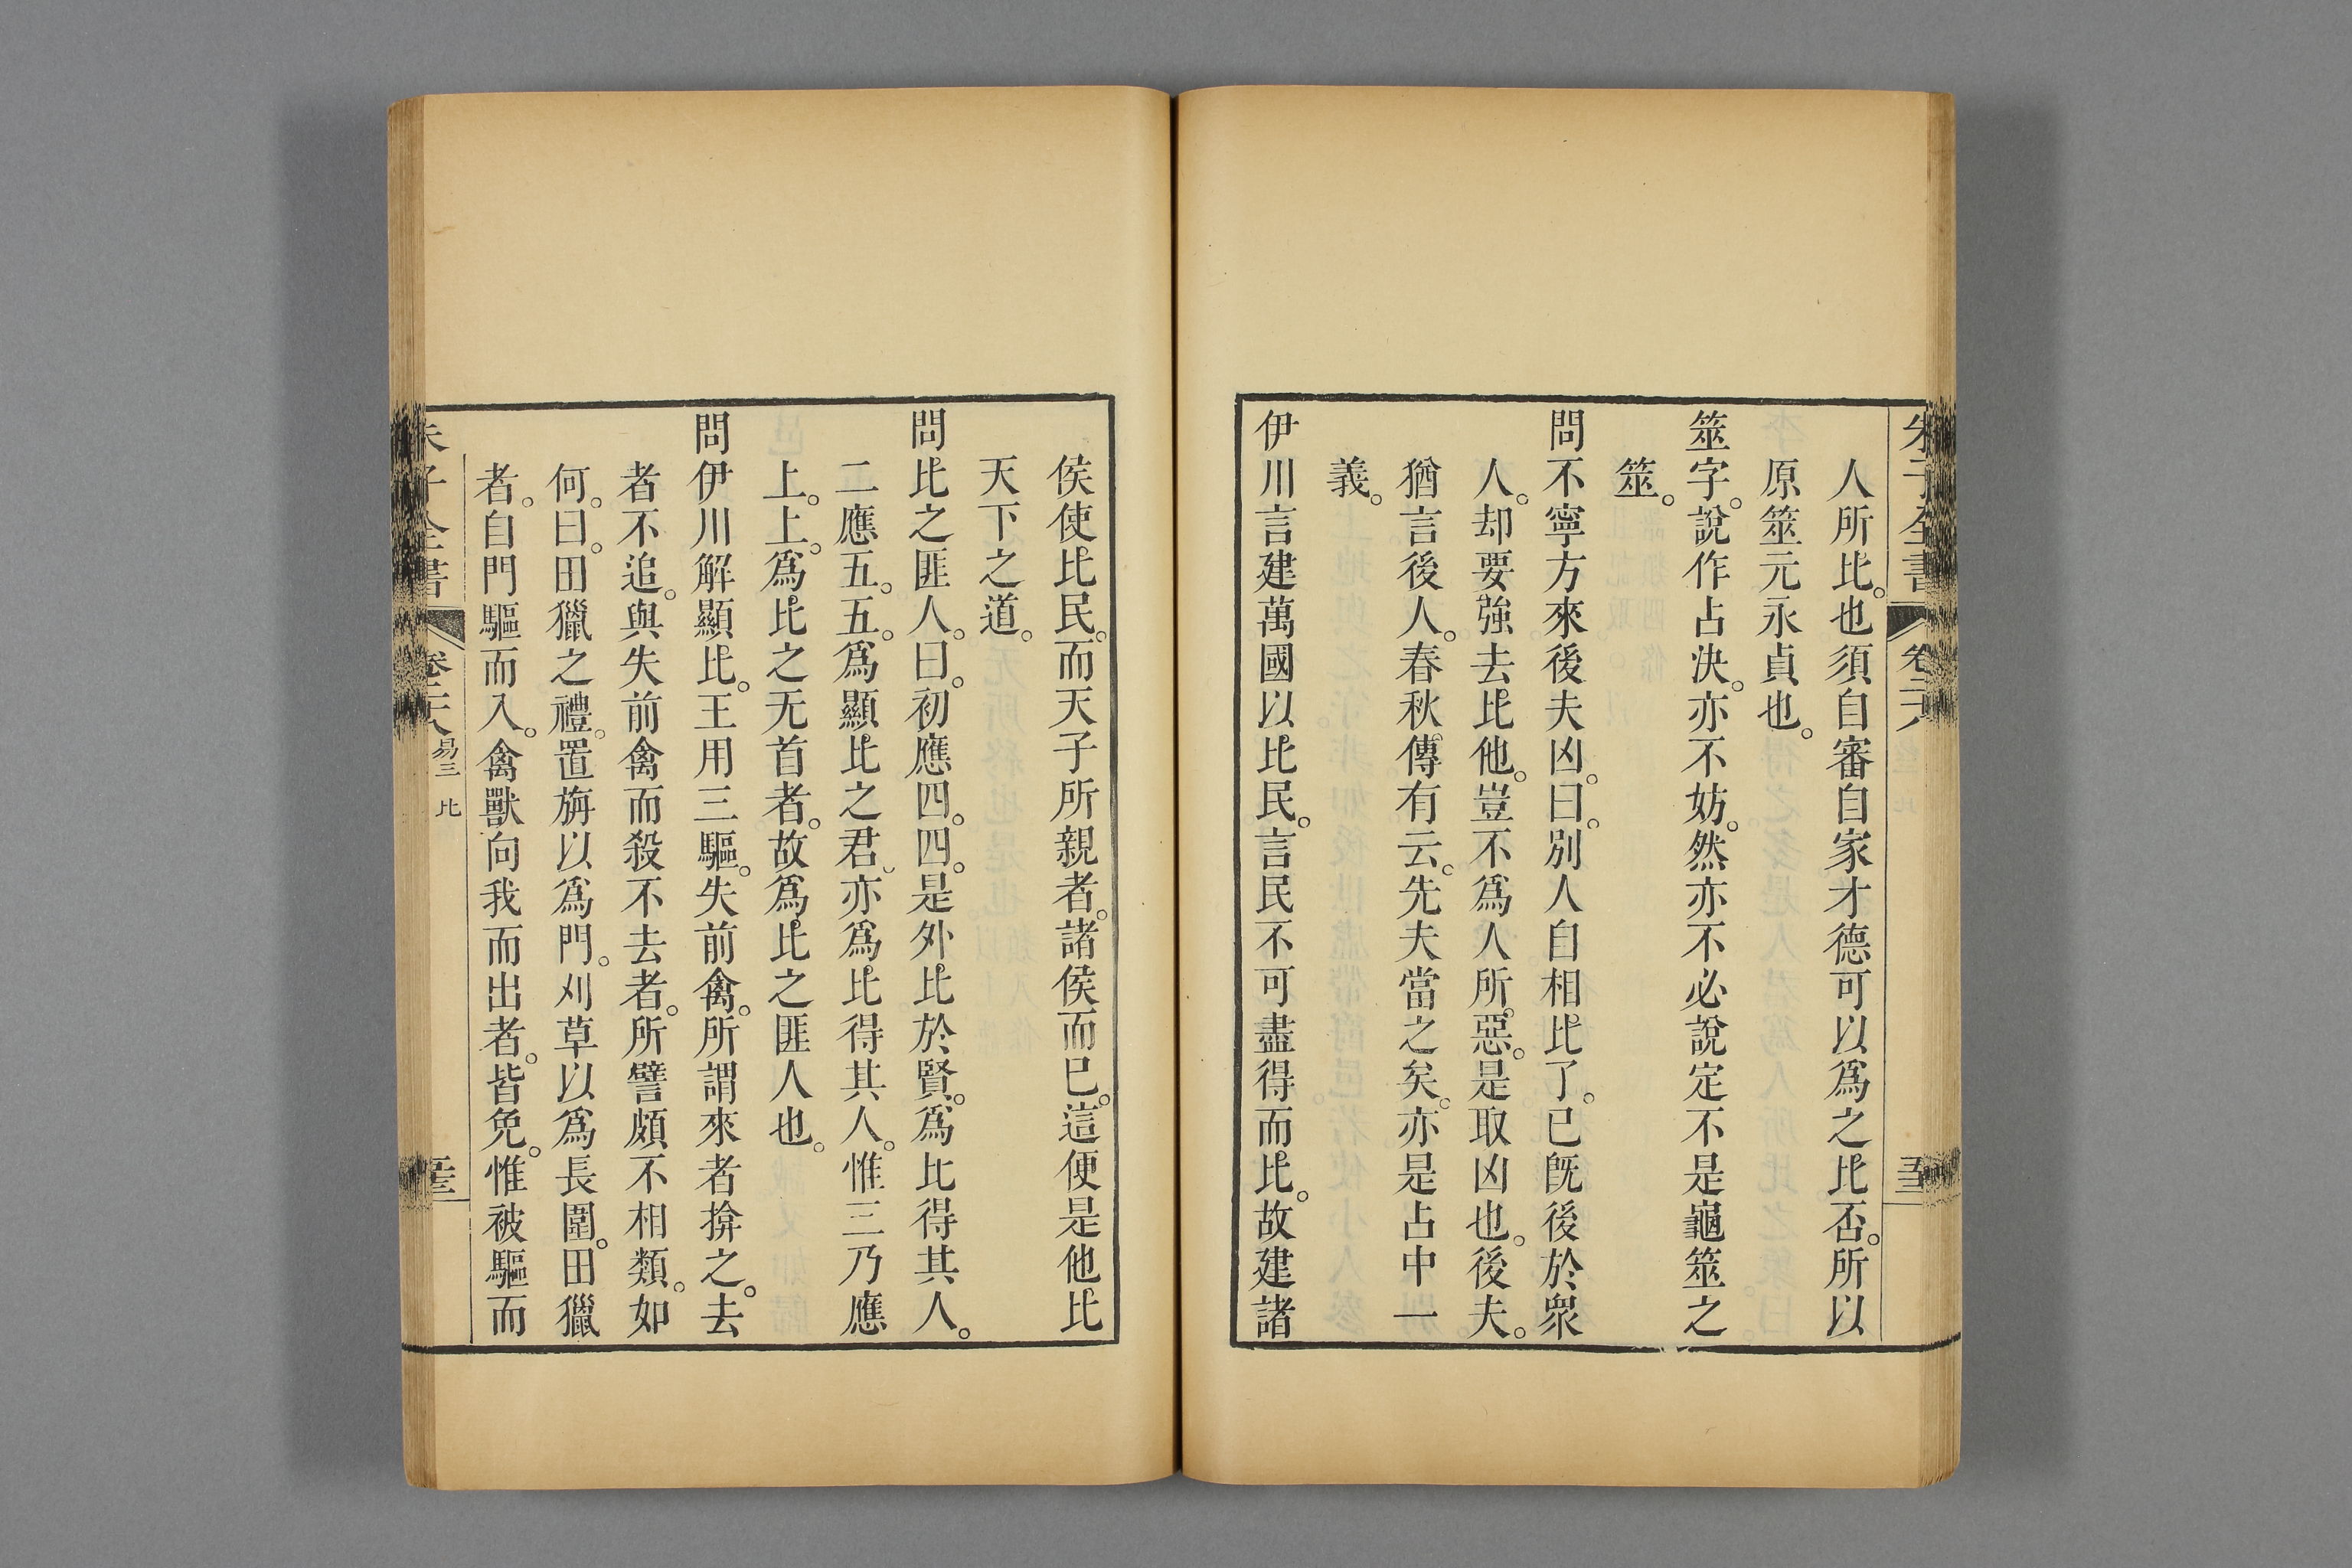 人所比。也須自審自家才德可以爲之比否。所以
原筮元永貞也。
筮字。說作占決。亦不妨。然亦不必說定不是龜筮之
筮。
問不寧方來後夫凶。曰。別人自相比了。已旣後於衆
人。却要強去比他。豈不爲人所惡。是取凶也。後夫。
猶言後人。春秋傳有云。先夫當之矣。亦是占中一
義。
伊川言建萬國以比民。言民不可盡得而比。故建諸
侯使比民。而天子所親者。諸侯而已。這便是他比
天下之道。
問比之匪人。曰。初應四。四。是外比於賢。爲比得其人。
二應五。五。爲顯比之君。亦爲比得其人。惟三乃應
上。上。爲比之无首者。故爲比之匪人也。
問伊川解顯比。王用三驅。失前禽。所謂來者揜之。去
者不追。與失前禽而殺不去者。所譬頗不相類。如
何。曰。田獵之禮。置旃以爲門。刈草以爲長圍。田獵
者。自門驅而入。禽獸向我而出者。皆免。惟被驅而
朱子全書
易三 比